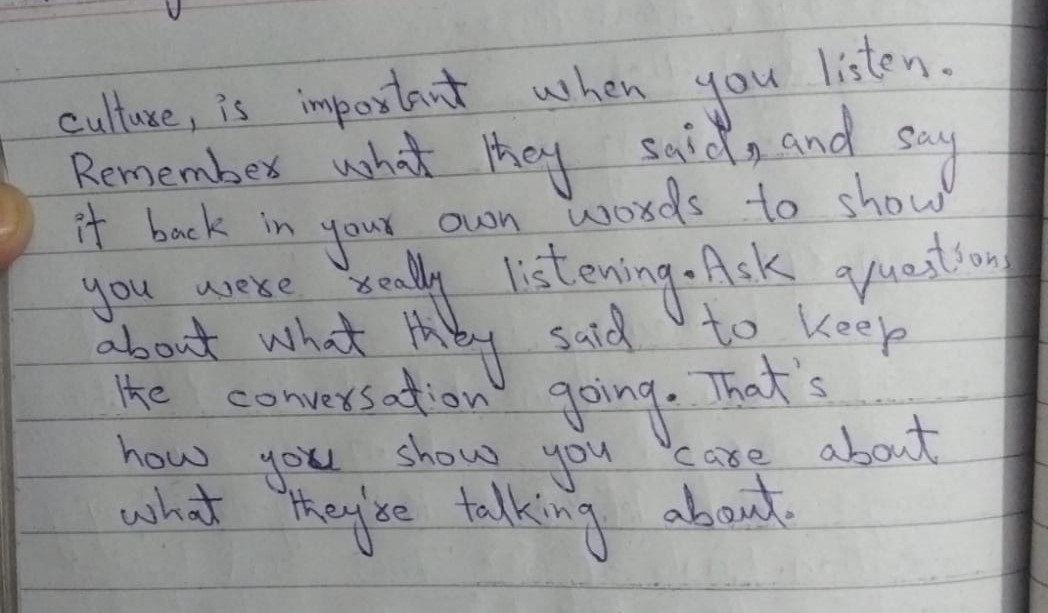 culture, is important when you listen.
Remember what they said, and say
it back in your own words to show
you were really listening. Ask questions
about what they said to keep
the conversation going. That's
how you show you care about
what they're talking about.